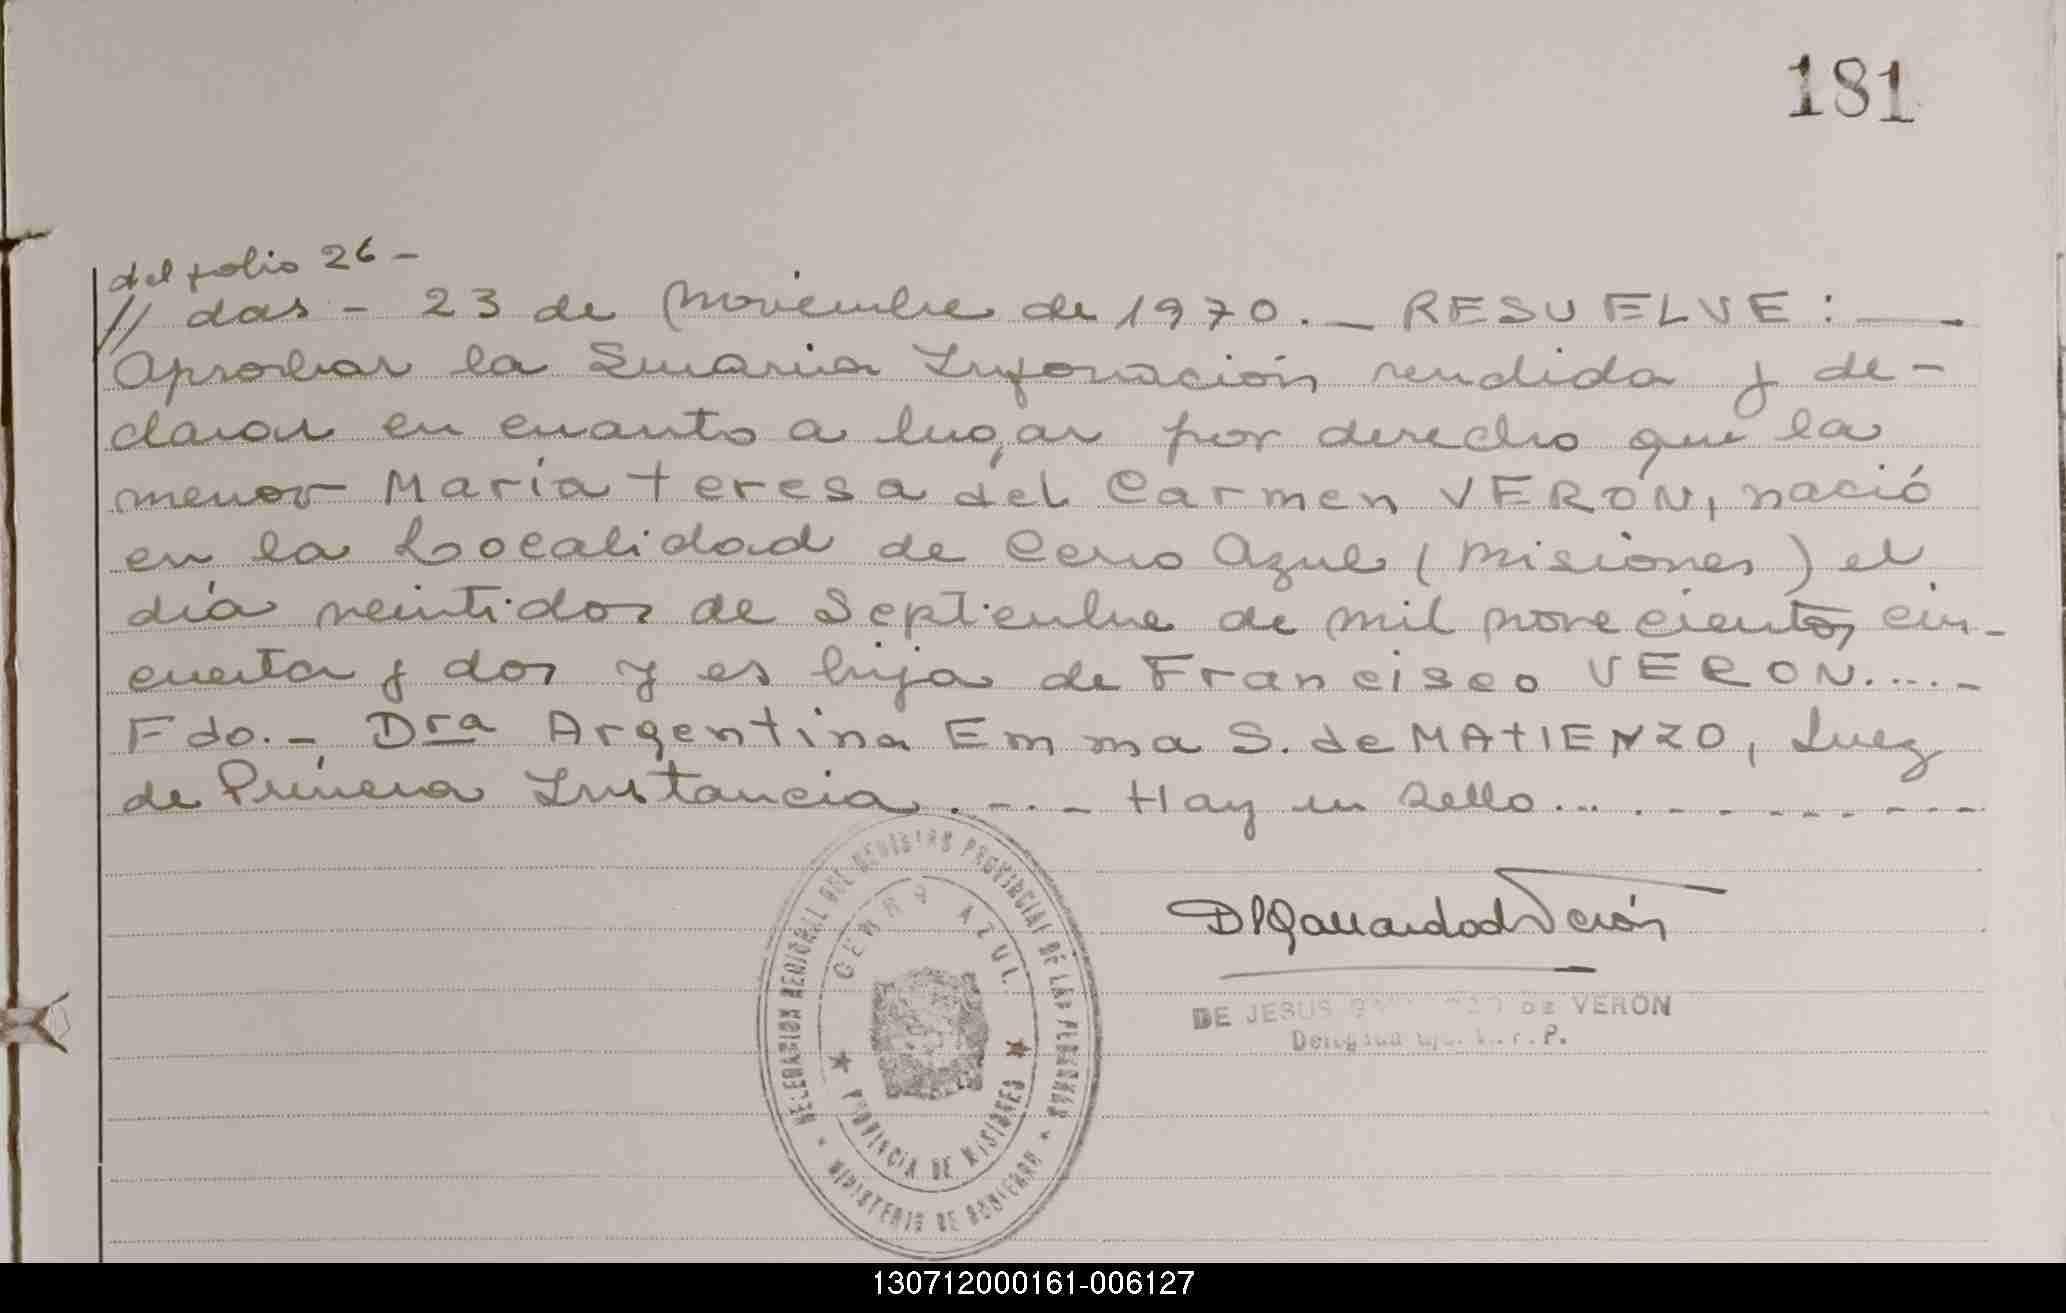 181
del folio 26 -
// das - 23 de Noviembre de 1970. _ RESUELVE : __
Aprobar la Sumaria Información rendida y de-
clarar en cuanto a lugar por derecho que la
menor María Teresa del Carmen VERÓN, nació
en la Localidad de Cerro Azul (Misiones) el
día veintidos de Septiembre de mil novecientos cin-
cuenta y dos y es hija de Francisco VERON.....-
Fdo.- Dra Argentina Emma S. de MATIENZO, Juez
de Primera Instancia . - . - Hay un sello... . - - - - - - -
DELEGACION REGIONAL DEL REGISTRO PROVINCIAL DE LAS PERSONAS
CERRO AZUL
PROVINCIA DE MISIONES
MINISTERIO DE GOBIERNO
DJGallardodeVerón
DE JESUS DE VERÓN
130712000161-006127